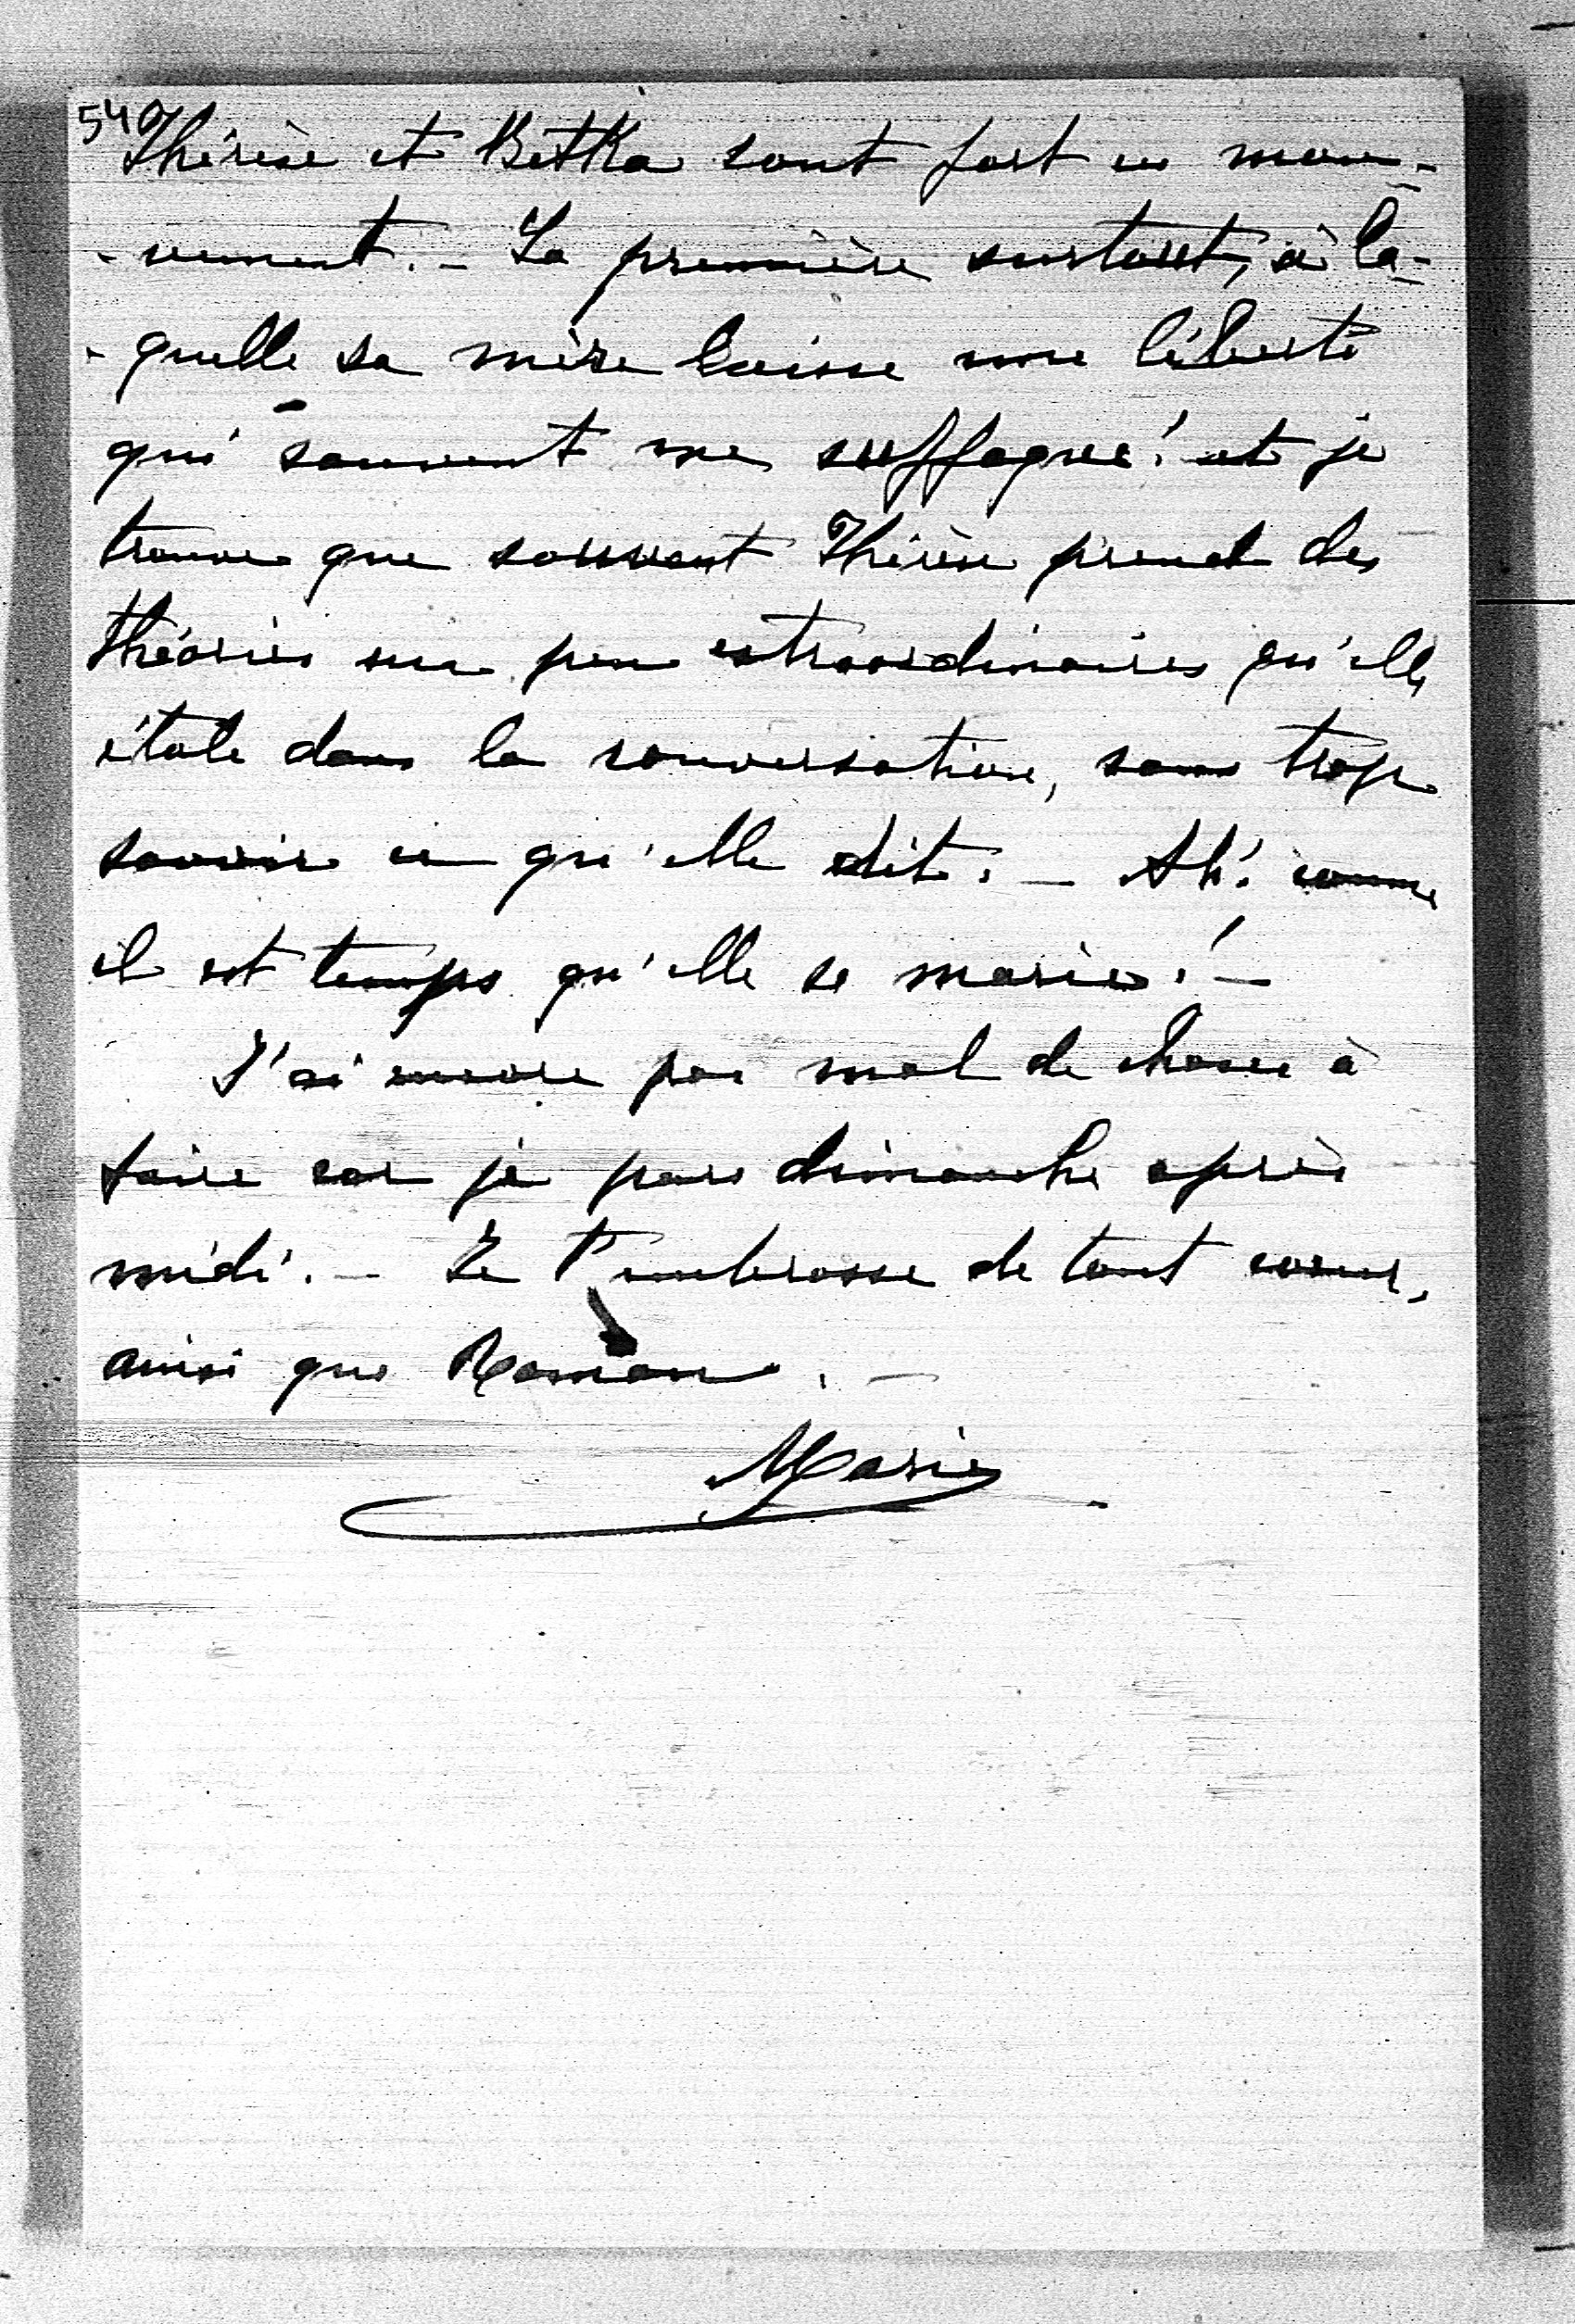 540
Thérèse et Betka sont fort en mou-
-vement. - La première surtout, à la-
-quelle sa mère laisse une liberté
qui souvent me suffoque! et je
trouve que souvent Thérèse prend des
théories un peu extraordinaires qu'elle
étale dans la conversation, sans trop
savoir ce qu'elle dit. - Ah! comme
il est temps qu'elle se marie! -
J'ai encore pas mal de choses à
faire car je pars dimanche après
midi. - Je t'embrasse de tout coeur,
ainsi que Roman. -
Marie